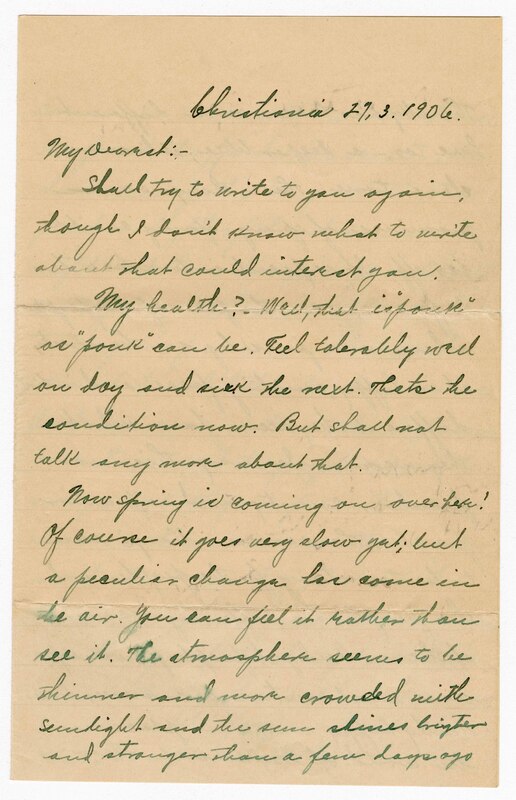 Christiania 29.3.1906.
My Dearest:-
Shall try to write to you again,
though I don't know what to write
about that could interest you.
My health? - Well, that is "ponk"
as "ponk" can be. Feel tolerably well
on day and sick the next. Thats the
condition now. But shall not
talk any more about that.
Now spring is coming on over here!
Of course it goes very slow yet; but
a peculiar change has come in
the air. You can feel it rather than
see it. The atmosphere seems to be
thinner and more crowded with
sunlight and the sun shines brigter
and stronger than a few days ago